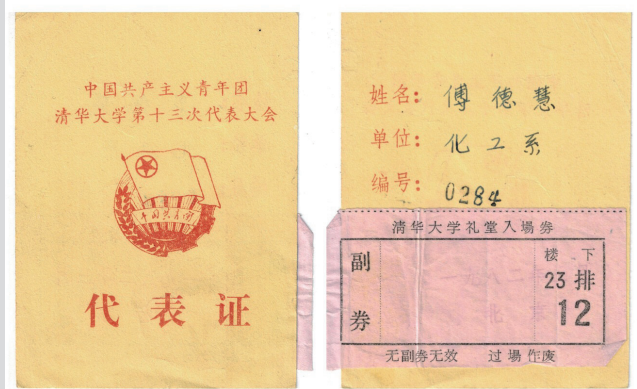 中国共产主义青年团
清华大学第十三次代表大会
中国共青团
代表证
姓名：傅德慧
单位：化工系
编号：0284
清华大学礼堂入場券
副券
楼下
23排
12
一九八二
北京
无副券无效 过場作废